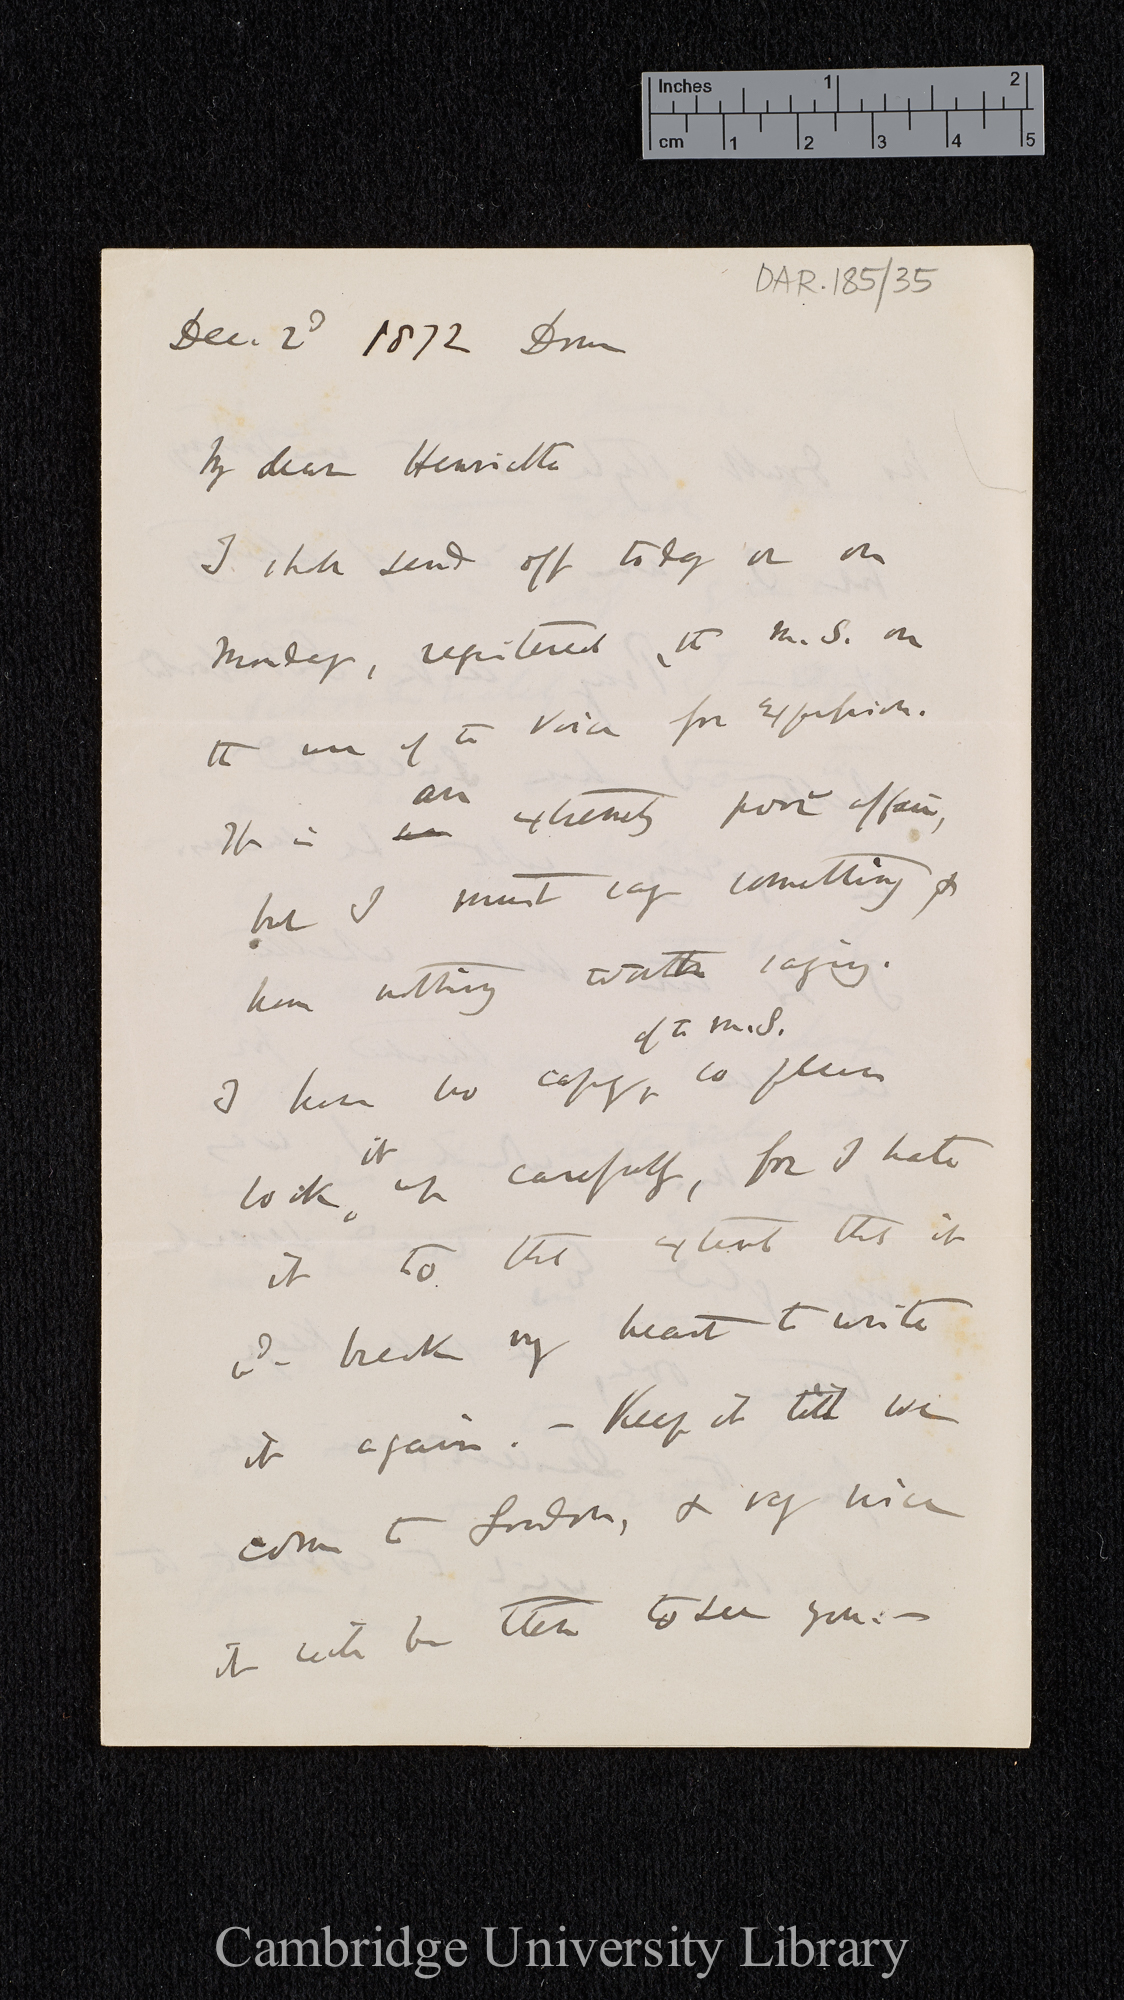 Inches 1 2
cm 1 2 3 4 5
DAR.185/35
Dec. 2d 1872 Down
My dear Henrietta
I shall send off today or on
Monday, registered, the M.S. on
the use of the Voice for Expression.
It is an extremely poor affair,
but I must say something &
have nothing worth saying.
I have no copy, of the M.S. so please
lock it up carefully, for I hate
it to that extent that it
wd- break my heart to write
it again. — Keep it till we
come to London, & vy nice
it will be then to see you. —
Cambridge University Library